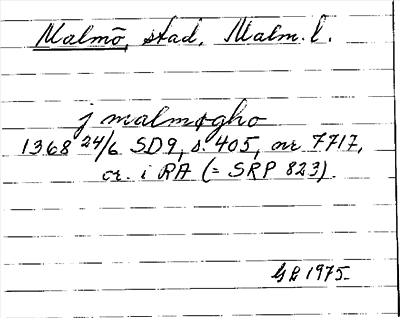 Malmö, stad, Malm. l.
j malmøgho
1368 24/6 SD9, s. 405, nr 7717,
or. i RA (= SRP 823).
GL 1975